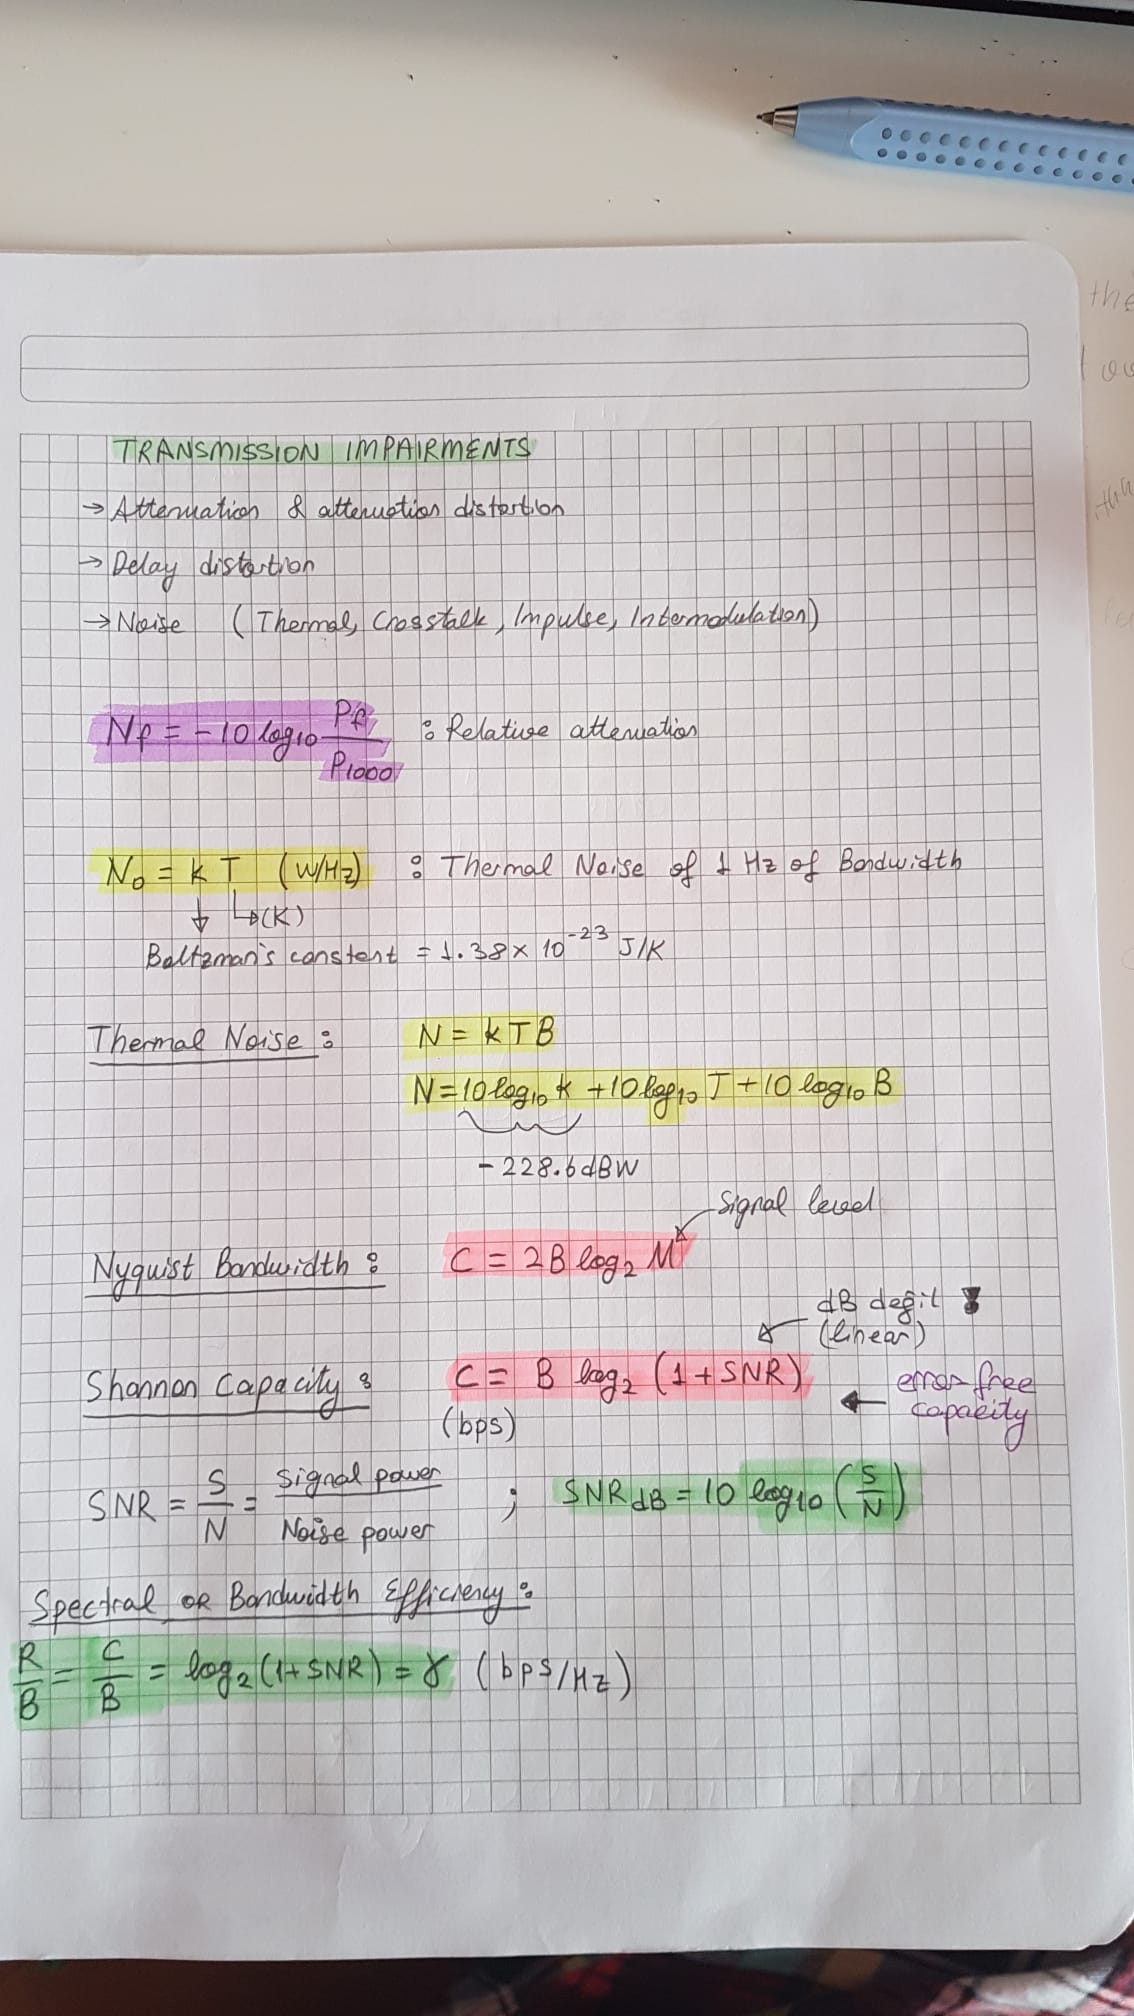 TRANSMISSION IMPAIRMENTS
→ Attenuation & attenuation distortion
→ Delay distortion
→ Noise ( Thermal, Crosstalk, Impulse, Intermodulation)
Nf = -10 log10 Pf / P1000 : Relative attenuation
N0 = k T (W/Hz) : Thermal Noise of 1 Hz of Bandwidth
↓ ↳(K)
Boltzman's constant = 1.38 x 10^-23 J/K
Thermal Noise : N = kTB
N = 10 log10 k + 10 log10 T + 10 log10 B
-228.6 dBW
Signal level
Nyquist Bandwidth : C = 2B log2 M
dB degil !
(linear)
Shannon Capacity : C = B log2 (1 + SNR) ← error-free capacity
(bps)
SNR = S/N = Signal power / Noise power ; SNR dB = 10 log10 (S/N)
Spectral OR Bandwidth Efficiency :
R/B = C/B = log2 (1+SNR) = γ (bps/Hz)
the